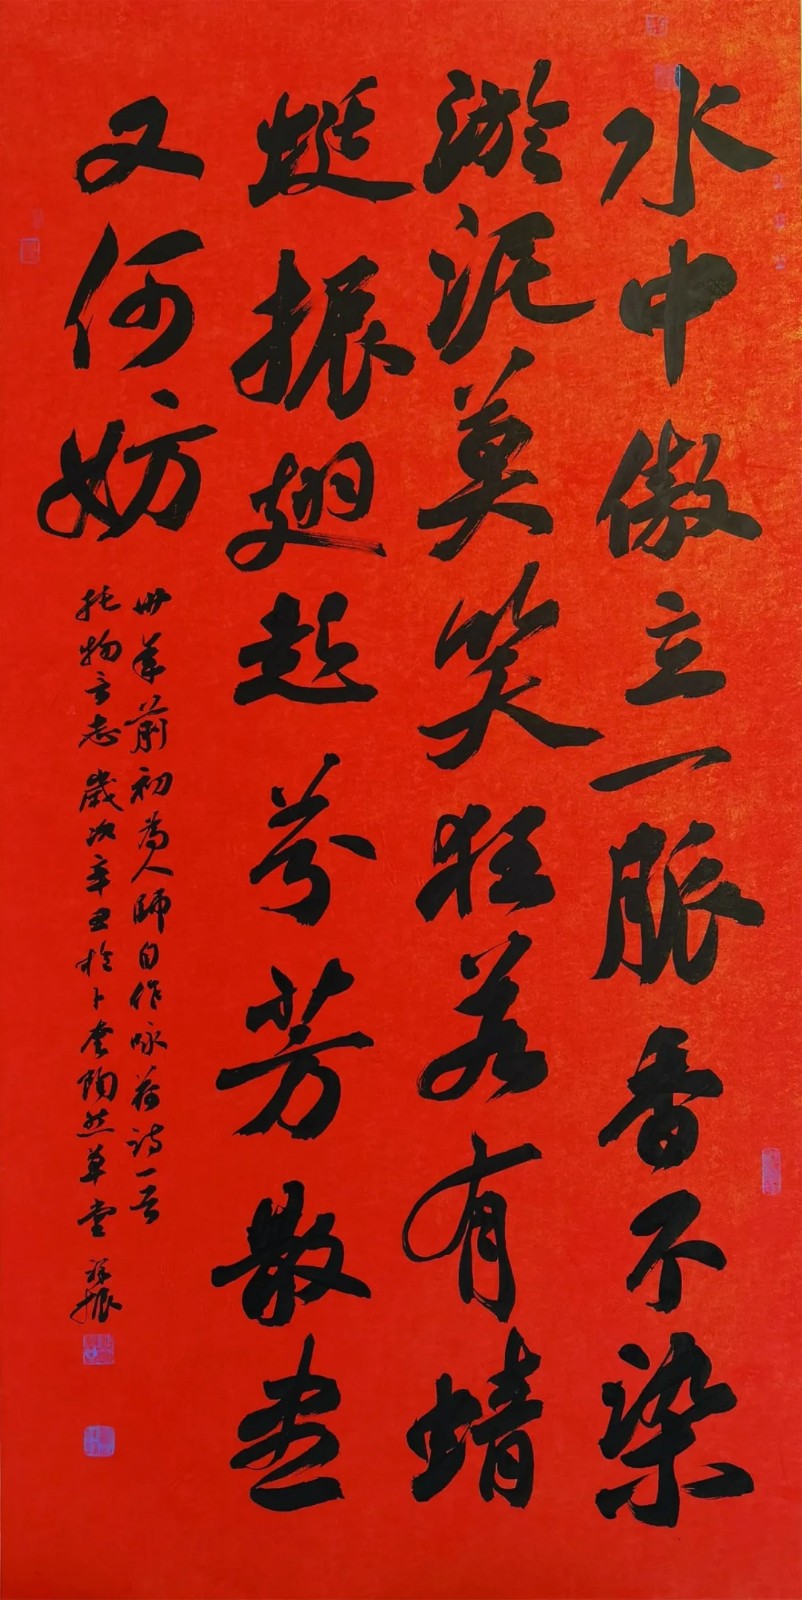 水中傲立一脈香不染
淤泥莫笑狂若有蜻
蜓振翅起芬芳散盡
又何妨
卅年前初為人師自作咏荷詩一首
托物言志歲次辛丑於卜奎陶然草堂 祥振